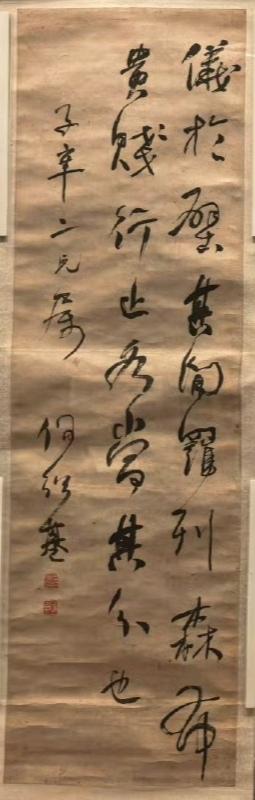 儀於壁其間羅列森布
貴賤行止各當其分也
子辛二兄屬
何紹基